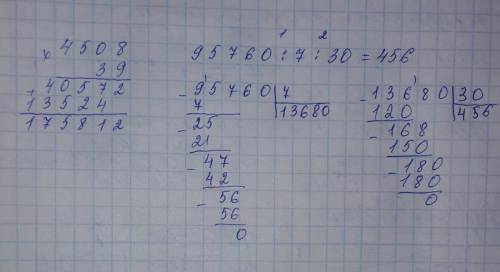 × 4508
39
+ 40572
13524
175812
1 2
95760 : 7 : 30 = 456
- 95760 | 7
7 | 13680
- 25
21
- 47
42
- 56
56
0
- 13680 | 30
120 | 456
- 168
150
- 180
180
0